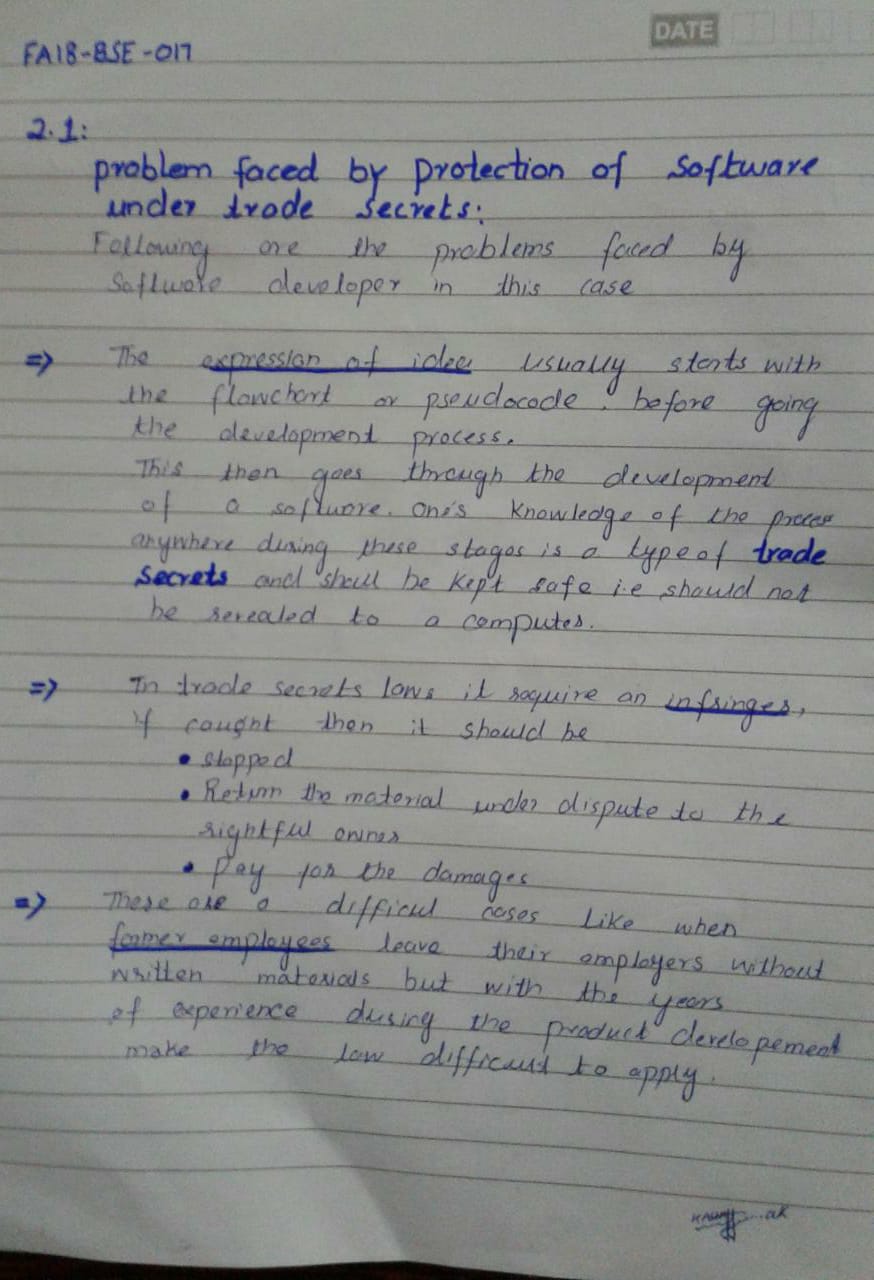 DATE
FA18-BSE-017
2.1:
problem faced by protection of software
under trade secrets:
Following are the problems faced by
Software developer in this case
=> The expression of idea usually starts with
the flowchart or pseudocode. before going
the development process.
This then goes through the development
of a software. One's knowledge of the process
anywhere during these stages is a type of trade
secrets and shall be kept safe i.e should not
be revealed to a computer.
=> In trade secrets laws it require an infringer,
if caught then it should be
• stopped
• Return the material under dispute to the
rightful owner
• Pay for the damages
=> These are a difficul cases like when
former employees leave their employers without
written materials but with the years
of experience during the product developement
make the law difficult to apply.